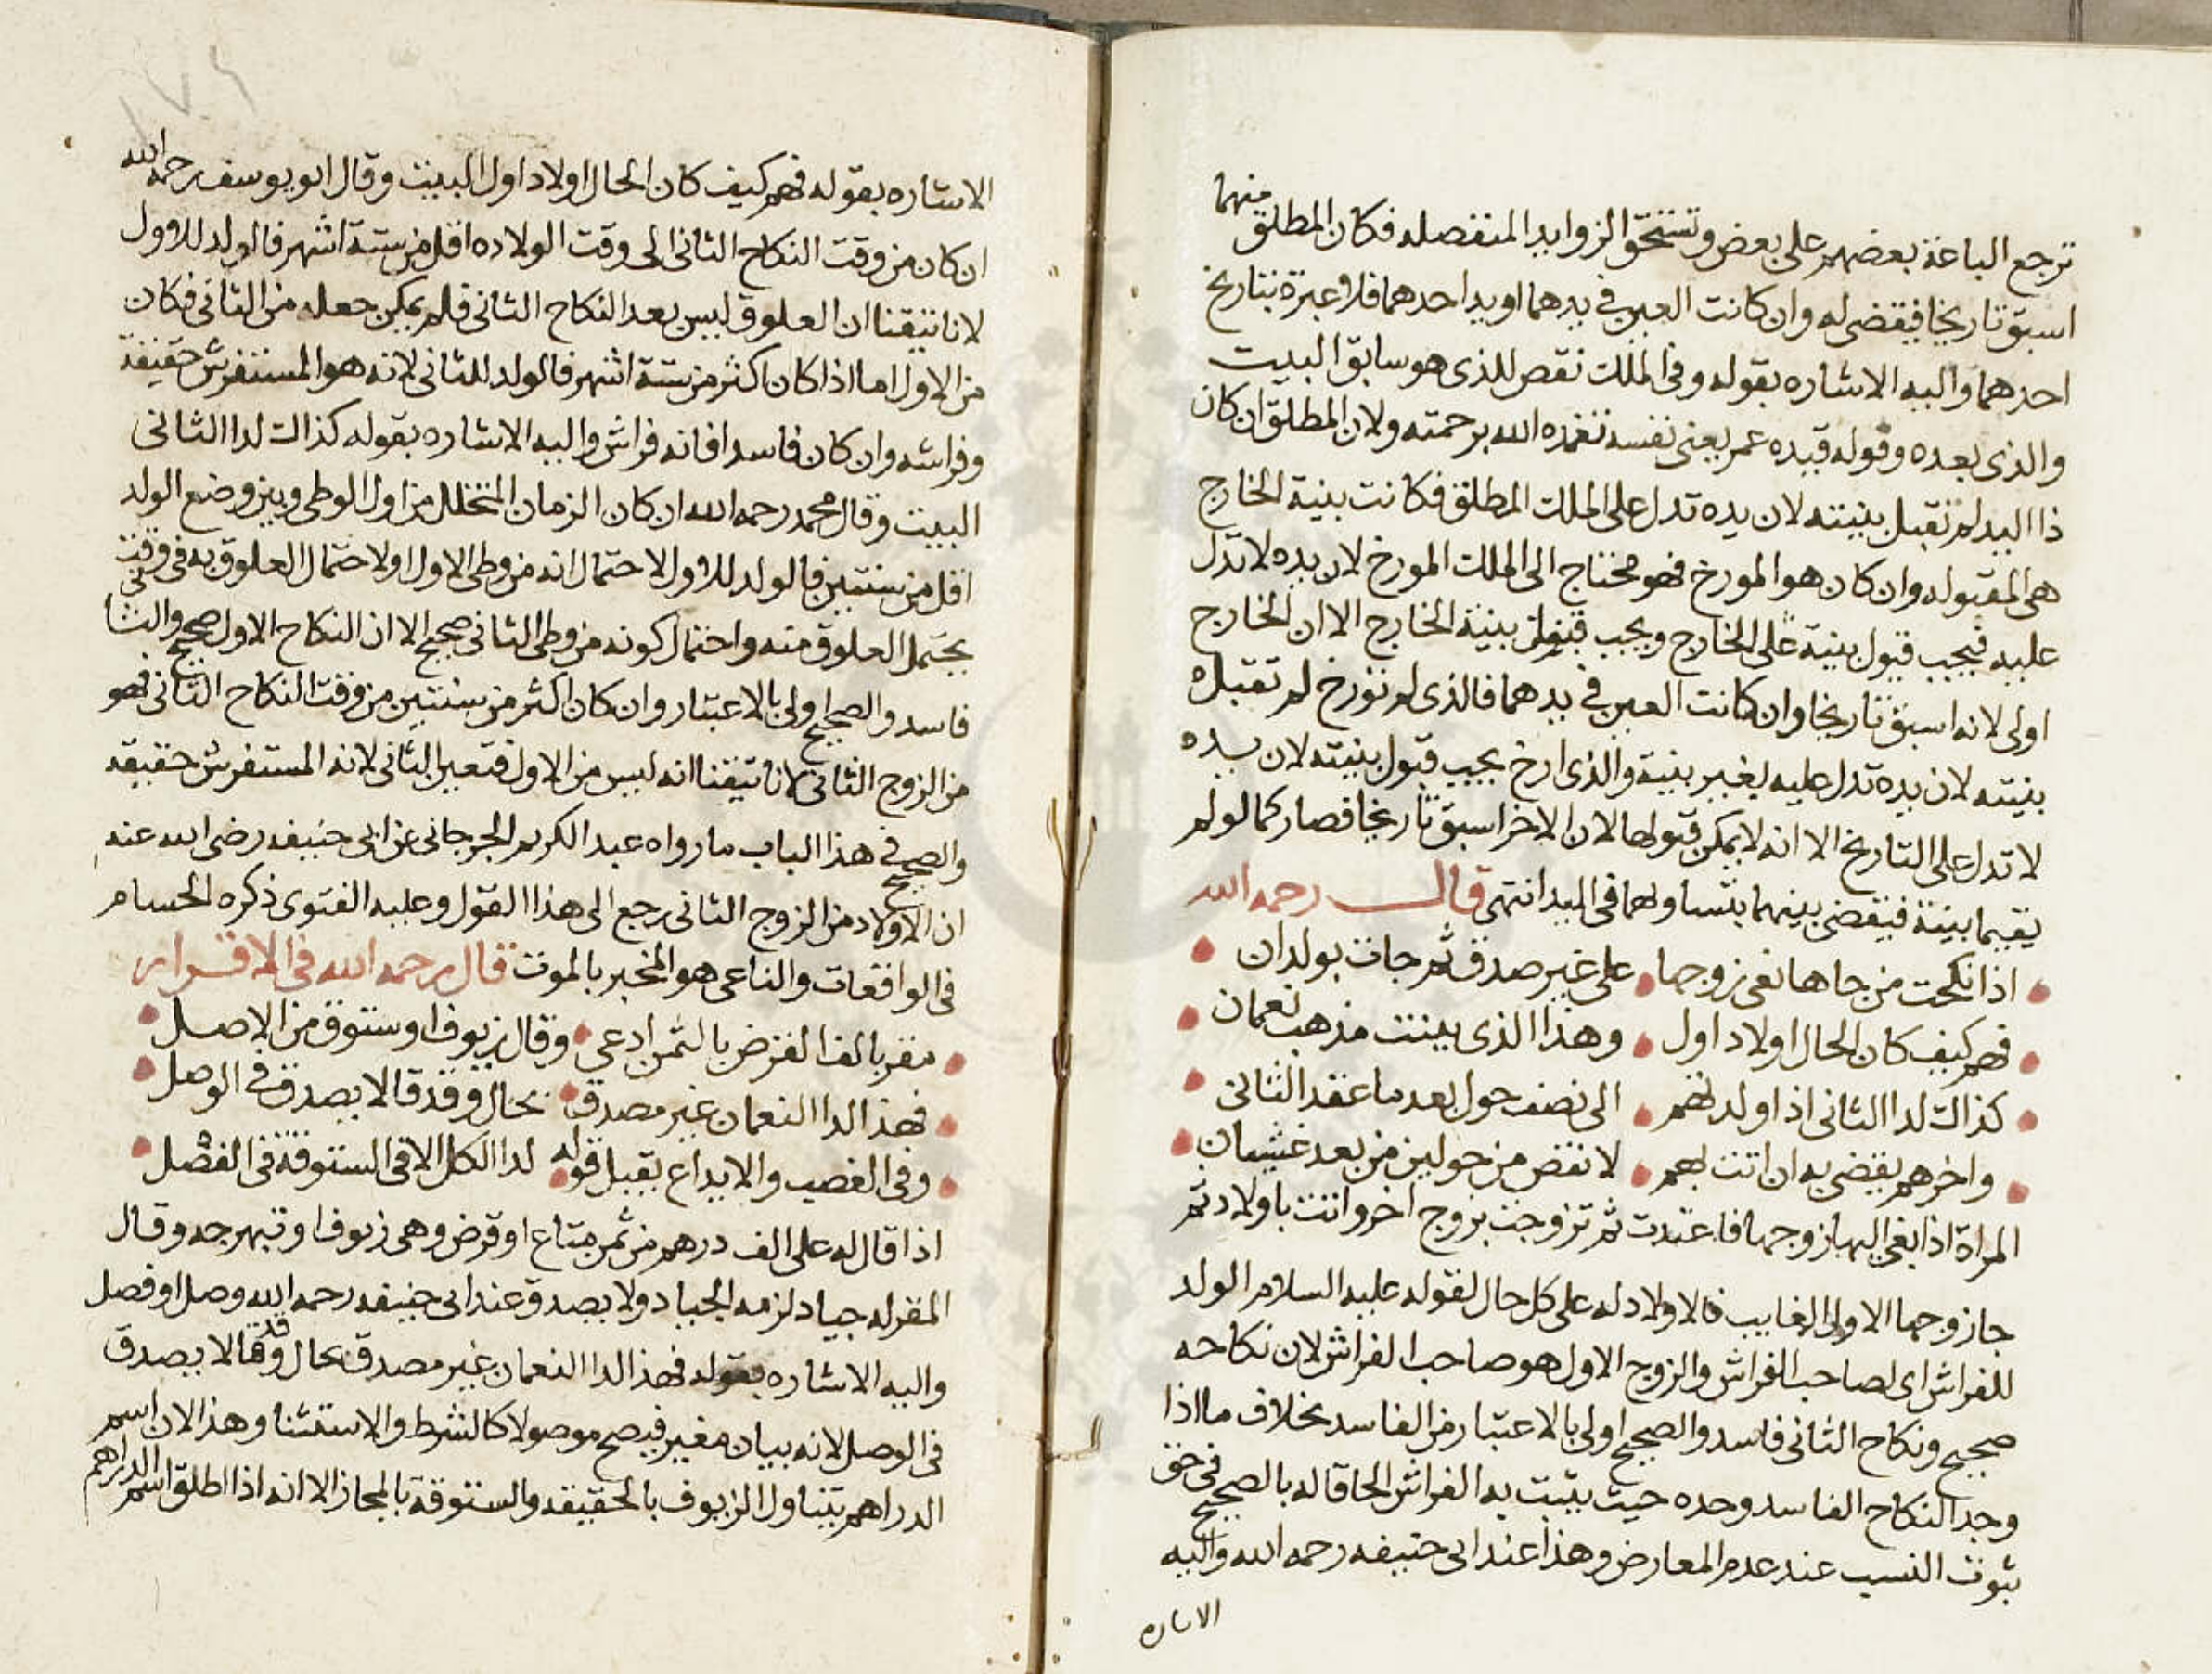 ترجع الباعة بعضهم على بعض وتستحق الزوايد المنفصله فكان المطلق منهما
اسبق تاريخا فيقضى له وان كانت العين في يدهما او يد احدهما فلا عبرة بتاريخ
احدهما واليه الاشاره بقوله وفى الملك نقص للذى هو سابق البيت
والذى بعده وقوله قيده عمر يعنى نفسه تغمده الله برحمته ولان المطلق ان كان
ذا اليد لم تقبل بينته لان يده تدل على الملك المطلق فكانت بنية الخارج
هى المقبوله وان كان هو المورخ فهو محتاج الى الملك المورخ لان يده لا تدل
عليه فيجب قبول بنية على الخارج ويجب بنية الخارج الا ان الخارج
اولى لانه اسبق تاريخا وان كانت العين في يدهما فالذى لم تورخ لم تقبل
بنيته لان يده تدل عليه بغير بنية والذى ارخ يجب قبول بنيته لان يده
لا تدل على التاريخ الا انه لا يمكن قبولها لان الاخر اسبق تاريخا فصار كما لو لم
يقيما بينة فيقضى بينهما بتساولهما فى اليد انتهى قال رحمه الله
اذا نكحت من جاها نعى زوجها على غير صدق ثم جات بولدان
فهم كيف كان الحال اولاد اول وهذا الذى بينت مذهب نعمان
كذاك لدا الثانى اذا ولد لهم الى نصف حول بعد ما عقد الثانى
واخرهم يقضى به ان اتت بهم لانقض من حولين من بعد غشيان
المراة اذا نعى اليها زوجها فاعتدت ثم تزوجت بزوج اخر واتت باولاد ثم
جا زوجها الاول الغايب فالاولاد له على كل حال لقوله عليه السلام الولد
للفراش اى لصاحب الفراش والزوج الاول هو صاحب الفراش لان نكاحه
صحيح ونكاح الثانى فاسد والصحيح اولى بالاعتبار من الفاسد بخلاف ما اذا
وجد النكاح الفاسد وحده حيث يثبت به الفراش الحاقا له بالصحيح فى حق
ثبوت النسب عند عدم المعارض وهذا عند ابى حنيفه رحمه الله واليه
الاشاره
الاشاره بقوله فهم كيف كان الحال اولاد اول البيت وقال ابو يوسف رحمه الله
ان كان من وقت النكاح الثانى الى وقت الولاده اقل من ستة اشهر فالولد للاول
لانا تيقنا ان العلوق ليس بعد النكاح الثانى فلم يمكن جعله من الثانى فكان
من الاول اما اذا كان اكثر من ستة اشهر فالولد للثانى لانه هو المستفرش حقيقة
وفراشه وان كان فاسدا فانه فراش واليه الاشاره بقوله كذاك لدا الثانى
البيت وقال محمد رحمه الله ان كان الزمان المتخلل من اول الوطى وبين وضع الولد
اقل من سنتين فالولد للاول لاحتمال انه من وطى الاول اولا حتمال العلوق به فى وقت
يحتمل العلوق منه واحتمال كونه من وطى الثانى صحيح الا ان النكاح الاول صحيح والثانى
فاسد والصحيح اولى بالاعتبار وان كان اكثر من سنتين من وقت النكاح الثانى فهو
من الزوج الثانى لانا تيقنا انه ليس من الاول فتعين الثانى لانه المستفرش حقيقه
والصحيح فى هذا الباب ما رواه عبد الكريم الجرجانى عن ابى حنيفه رضى الله عنه
ان الاولاد من الزوج الثانى رجع الى هذا القول وعليه الفتوى ذكره الحسام
فى الواقعات والناعى هو المخبر بالموت قال رحمه الله فى الاقرار
مقر بالف القرض بالثمن ادعى وقال زيوف او ستوق من الاصل
فهذا لدا النعمان غير مصدق بحال وقد قالا يصدق فى الوصل
وفى الغصب والايداع يقبل قوله لدا الكل الا فى الستوقة فى الفصل
اذا قال له على الف درهم من ثمن متاع او قرض وهى زيوف او نبهرجه وقال
المقر له جياد لزمه الجياد ولا يصدق عند ابى حنيفه رحمه الله وصل او فصل
واليه الاشاره بقوله فهذا لدا النعمان غير مصدق بحال وقد قالا يصدق
فى الوصل لانه بيان مغير فيصح موصولا كالشرط والاستثنا وهذا لان اسم
الدراهم يتناول الزيوف بالحقيقه والستوقة بالمجاز الا انه اذا اطلق اسم الدراهم